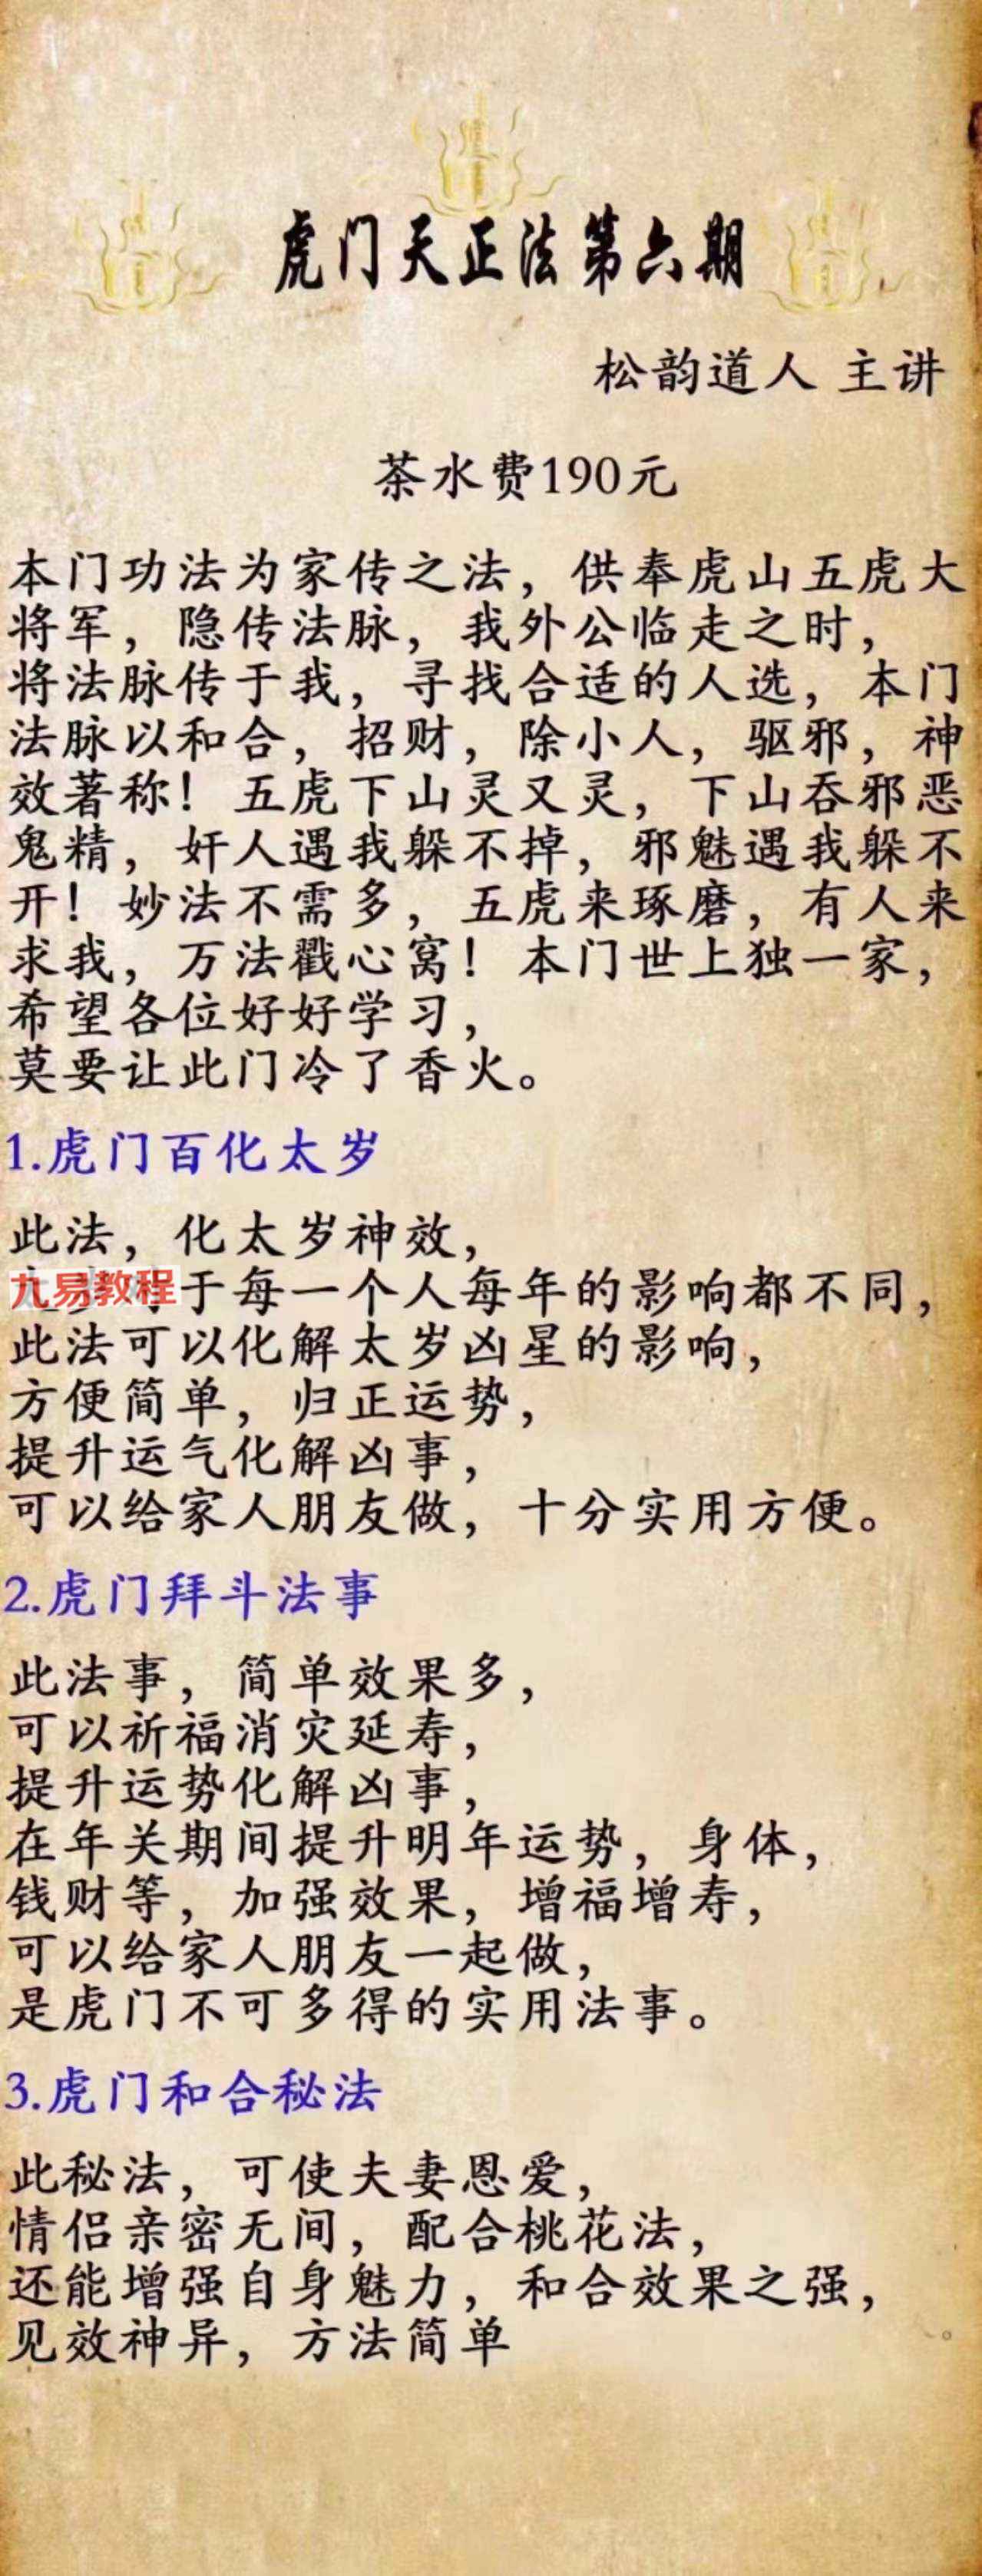 虎门天正法第六期
松韵道人 主讲
茶水费190元
本门功法为家传之法，供奉虎山五虎大
将军，隐传法脉，我外公临走之时，
将法脉传于我，寻找合适的人选，本门
法脉以和合，招财，除小人，驱邪，神
效著称！五虎下山灵又灵，下山吞邪恶
鬼精，奸人遇我躲不掉，邪魅遇我躲不
开！妙法不需多，五虎来琢磨，有人来
求我，万法戳心窝！本门世上独一家，
希望各位好好学习，
莫要让此门冷了香火。
1.虎门百化太岁
此法，化太岁神效，
九易教程
于每一个人每年的影响都不同，
此法可以化解太岁凶星的影响，
方便简单，归正运势，
提升运气化解凶事，
可以给家人朋友做，十分实用方便。
2.虎门拜斗法事
此法事，简单效果多，
可以祈福消灾延寿，
提升运势化解凶事，
在年关期间提升明年运势，身体，
钱财等，加强效果，增福增寿，
可以给家人朋友一起做，
是虎门不可多得的实用法事。
3.虎门和合秘法
此秘法，可使夫妻恩爱，
情侣亲密无间，配合桃花法，
还能增强自身魅力，和合效果之强，
见效神异，方法简单